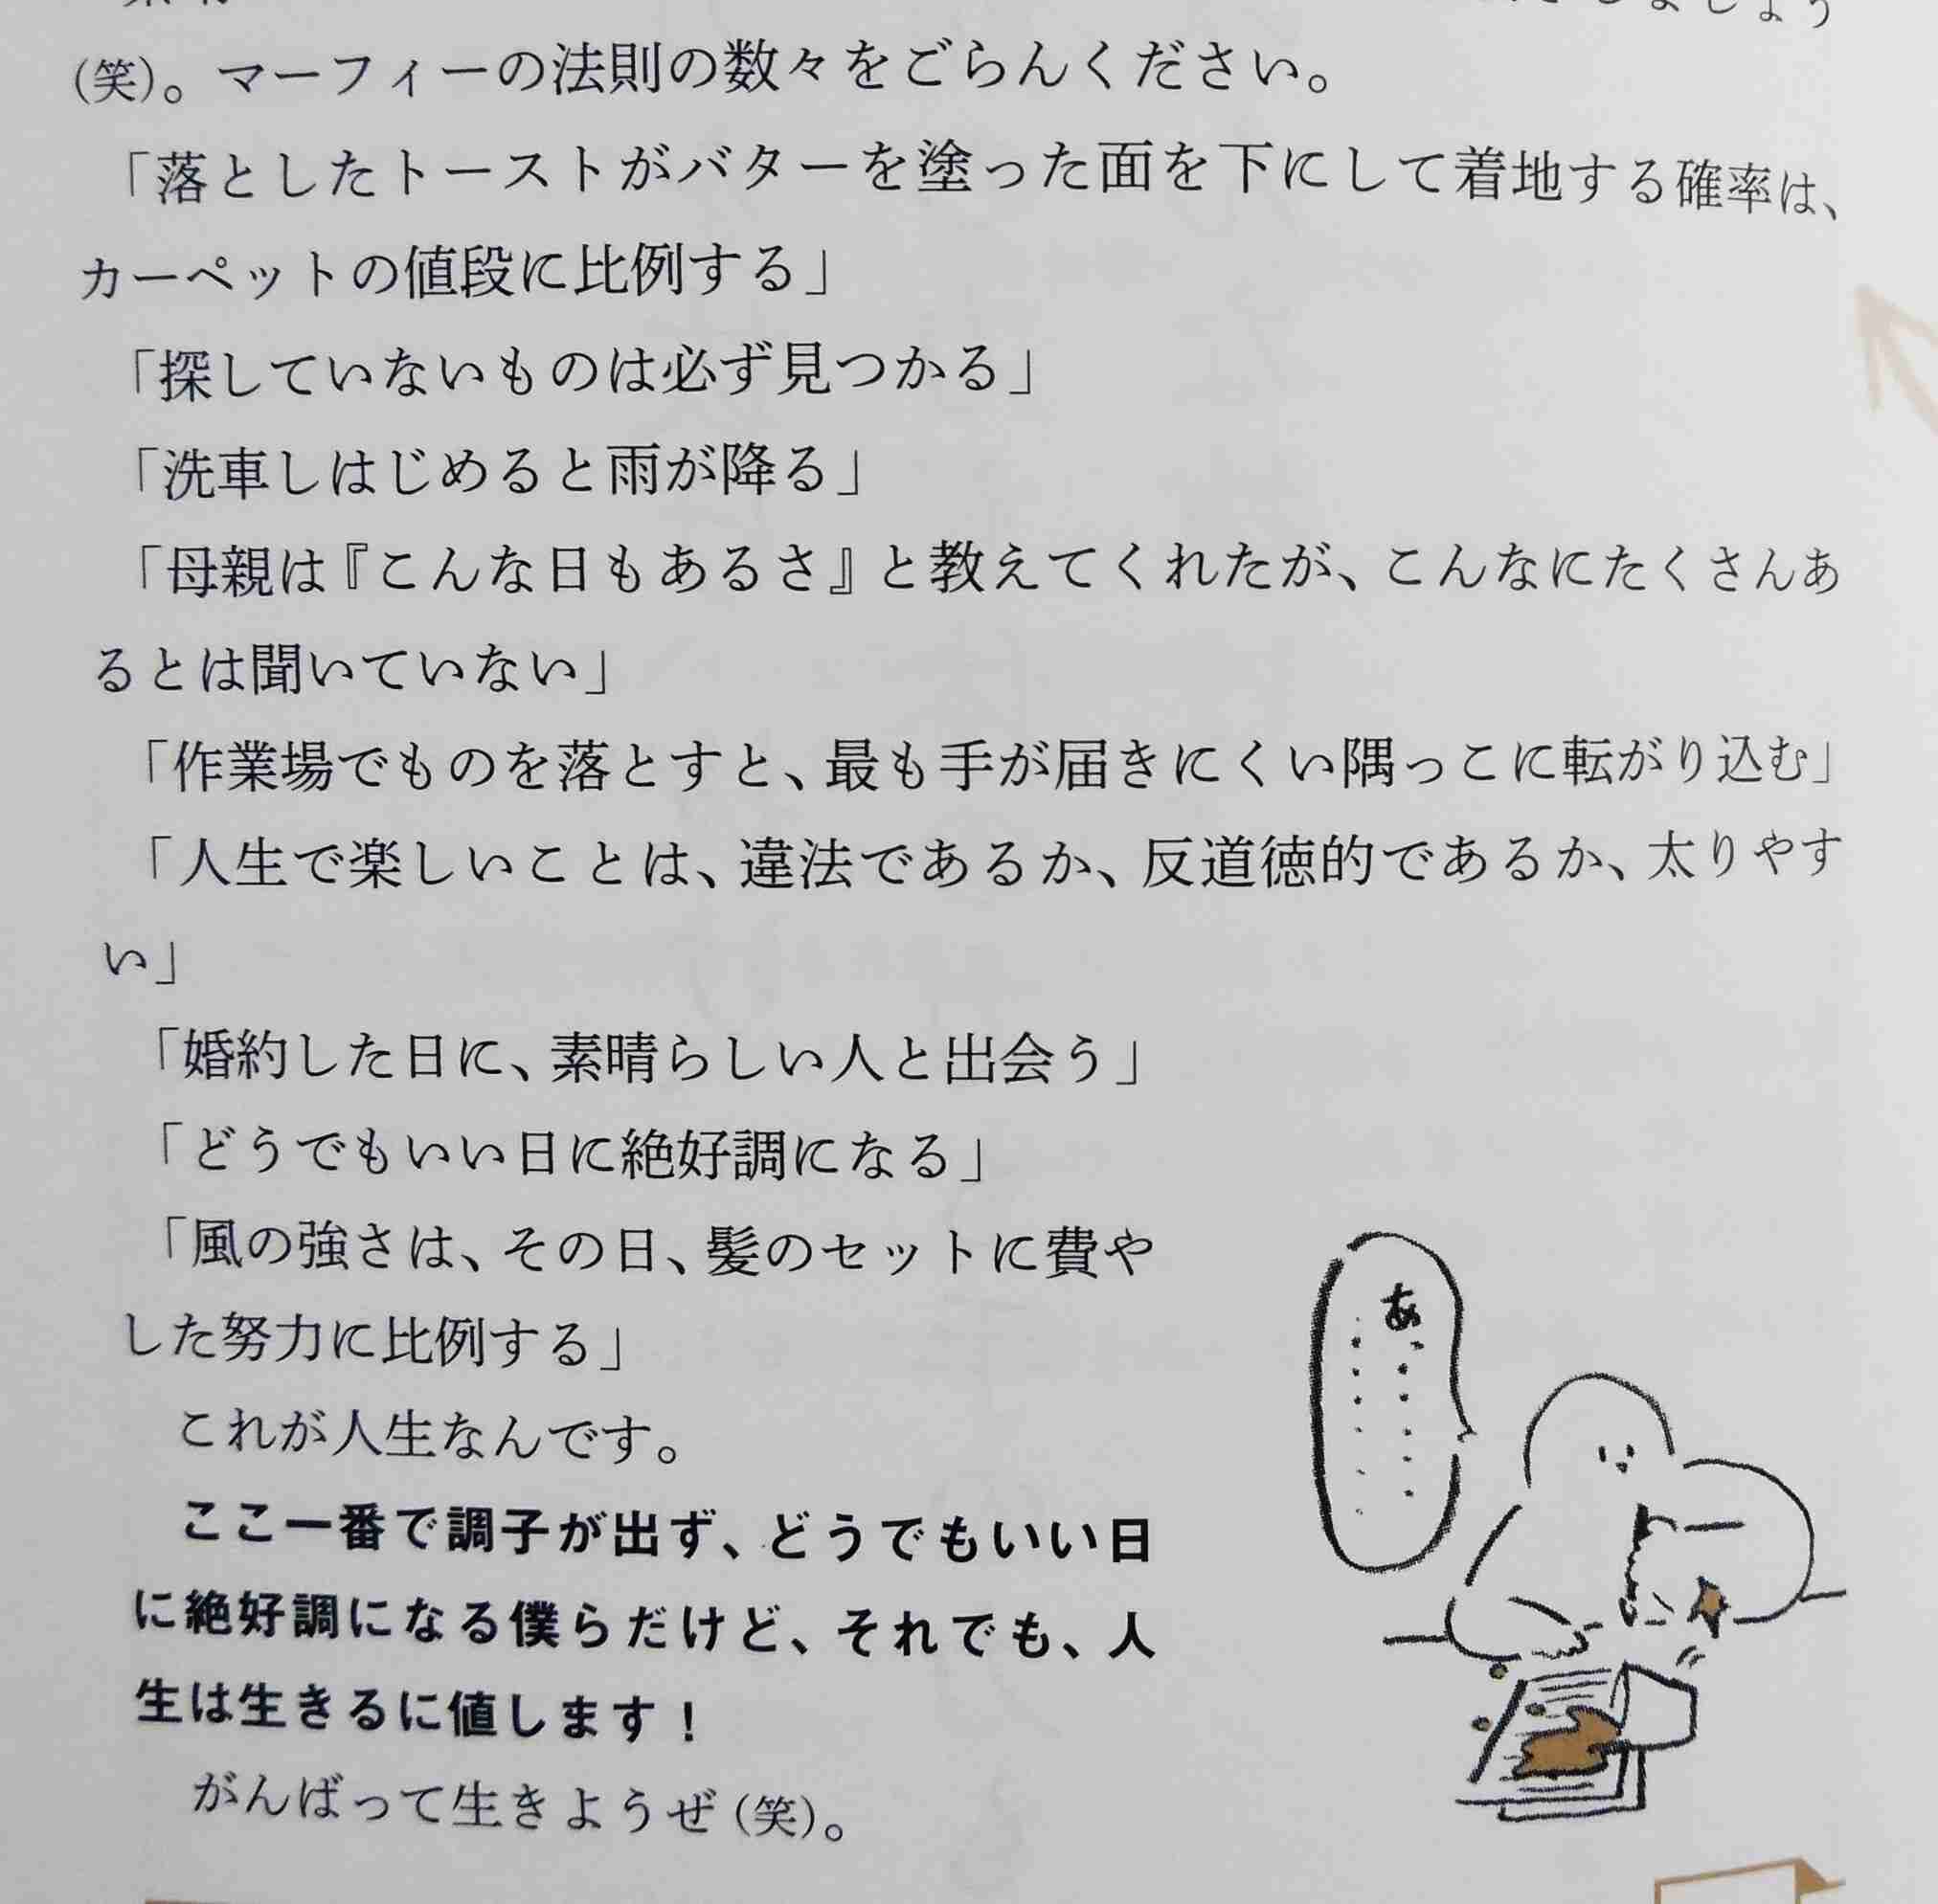 ましょう
(笑)。マーフィーの法則の数々をごらんください。
「落としたトーストがバターを塗った面を下にして着地する確率は、
カーペットの値段に比例する」
「探していないものは必ず見つかる」
「洗車しはじめると雨が降る」
「母親は『こんな日もあるさ』と教えてくれたが、こんなにたくさんあ
るとは聞いていない」
「作業場でものを落とすと、最も手が届きにくい隅っこに転がり込む」
「人生で楽しいことは、違法であるか、反道徳的であるか、太りやす
い」
「婚約した日に、素晴らしい人と出会う」
「どうでもいい日に絶好調になる」
「風の強さは、その日、髪のセットに費や
した努力に比例する」
これが人生なんです。
ここ一番で調子が出ず、どうでもいい日
に絶好調になる僕らだけど、それでも、人
生は生きるに値します！
がんばって生きようぜ(笑)。
あ……
……